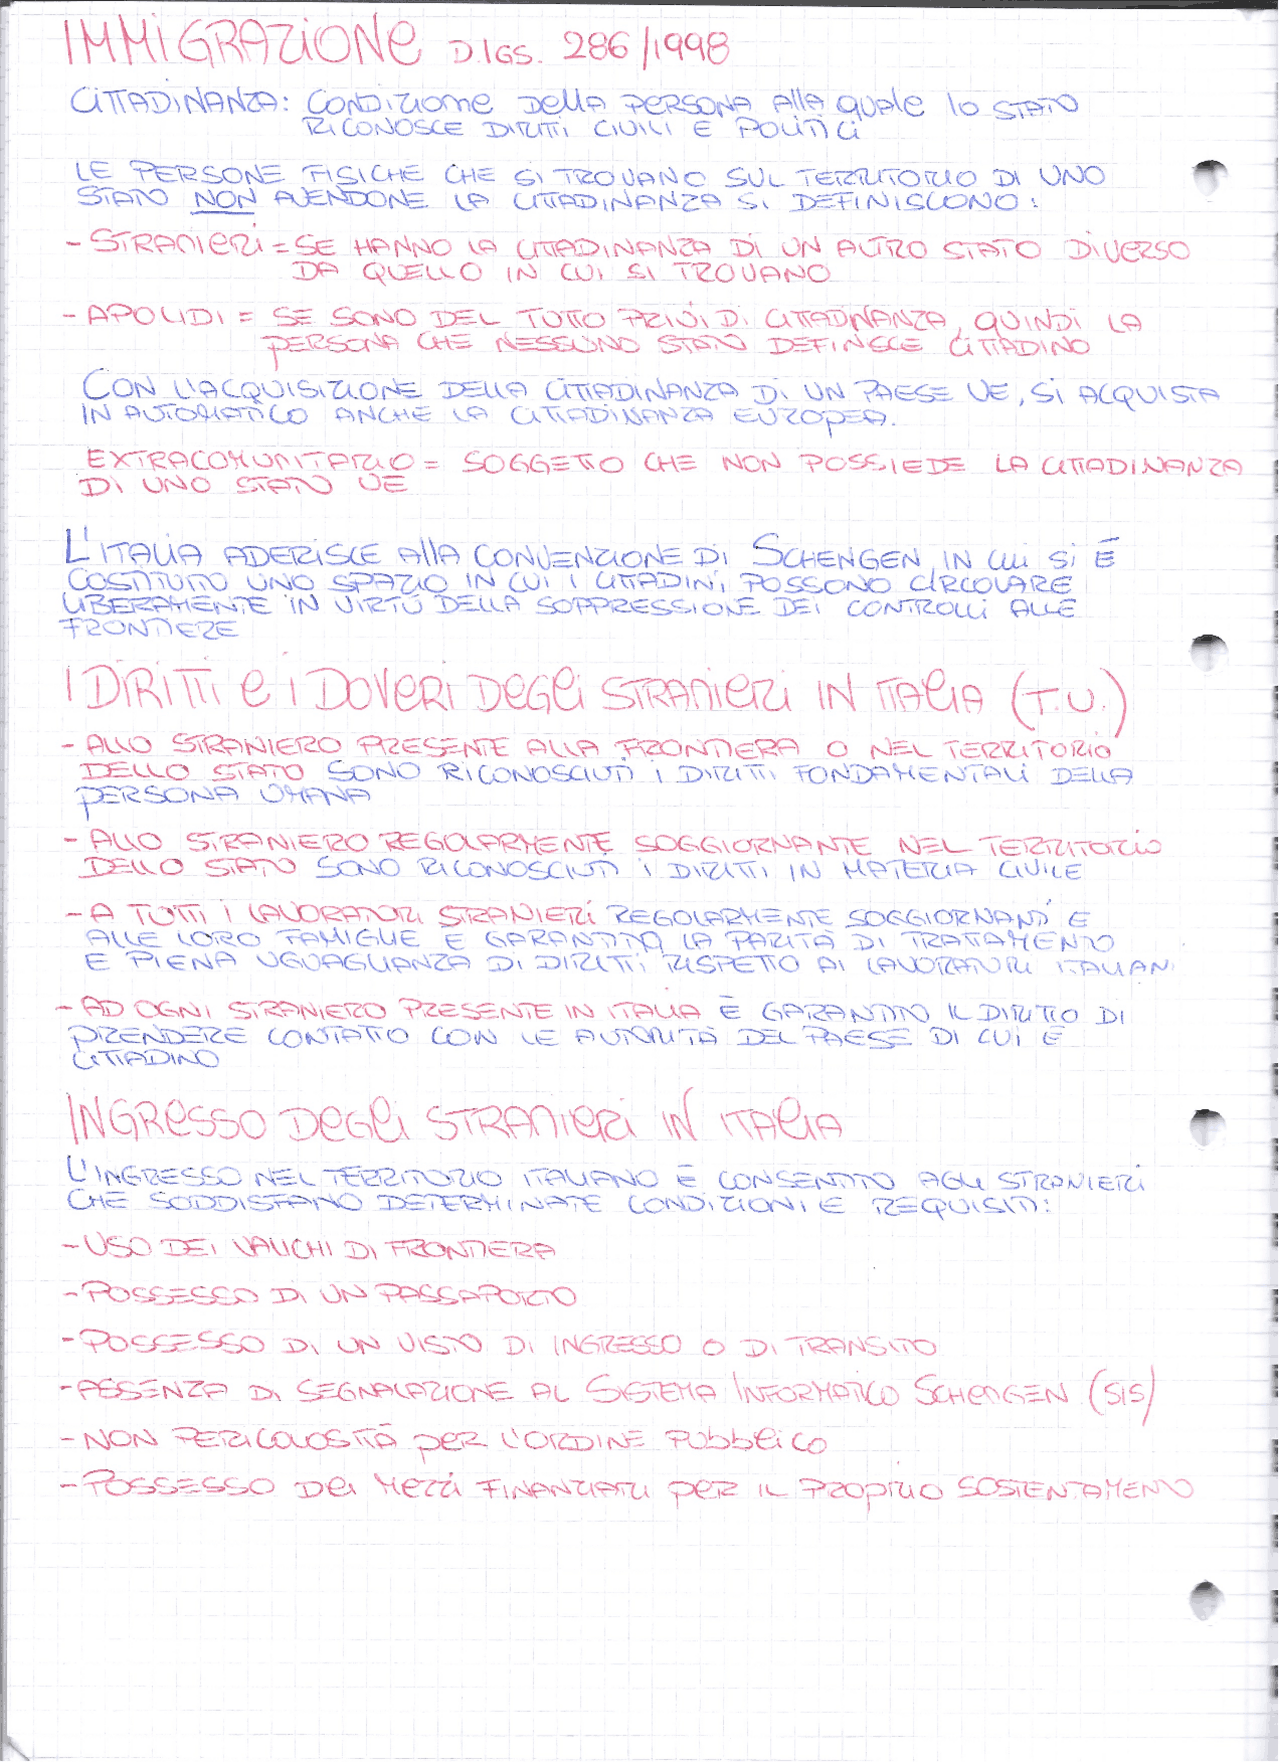 IMMIGRAZIONE D.lGS. 286/1998
CITTADINANZA: CONDIZIONE DELLA PERSONA ALLA QUALE LO STATO
RICONOSCE DIRITTI CIVILI E POLITICI
LE PERSONE FISICHE CHE SI TROVANO SUL TERRITORIO DI UNO
STATO NON AVENDONE LA CITTADINANZA SI DEFINISCONO:
- STRANIERI = SE HANNO LA CITTADINANZA DI UN ALTRO STATO DIVERSO
DA QUELLO IN CUI SI TROVANO
- APOLIDI = SE SONO DEL TUTTO PRIVI DI CITTADINANZA, QUINDI LA
PERSONA CHE NESSUNO STATO DEFINISCE CITTADINO
CON L'ACQUISIZIONE DELLA CITTADINANZA DI UN PAESE UE, SI ACQUISTA
IN AUTOMATICO ANCHE LA CITTADINANZA EUROPEA.
EXTRACOMUNITARIO = SOGGETTO CHE NON POSSIEDE LA CITTADINANZA
DI UNO STATO UE
L'ITALIA ADERISCE ALLA CONVENZIONE DI SCHENGEN, IN CUI SI È
COSTITUITO UNO SPAZIO IN CUI I CITTADINI POSSONO CIRCOLARE
LIBERAMENTE IN VIRTÙ DELLA SOPPRESSIONE DEI CONTROLLI ALLE
FRONTIERE
I DIRITTI E I DOVERI DEGLI STRANIERI IN ITALIA (T.U.)
- ALLO STRANIERO PRESENTE ALLA FRONTIERA O NEL TERRITORIO
DELLO STATO SONO RICONOSCIUTI I DIRITTI FONDAMENTALI DELLA
PERSONA UMANA
- ALLO STRANIERO REGOLARMENTE SOGGIORNANTE NEL TERRITORIO
DELLO STATO SONO RICONOSCIUTI I DIRITTI IN MATERIA CIVILE
- A TUTTI I LAVORATORI STRANIERI REGOLARMENTE SOGGIORNANTI E
ALLE LORO FAMIGLIE È GARANTITA LA PARITÀ DI TRATTAMENTO
E PIENA UGUAGLIANZA DI DIRITTI RISPETTO AI LAVORATORI ITALIANI
- AD OGNI STRANIERO PRESENTE IN ITALIA È GARANTITO IL DIRITTO DI
PRENDERE CONTATTO CON LE AUTORITÀ DEL PAESE DI CUI È
CITTADINO
INGRESSO DEGLI STRANIERI IN ITALIA
L'INGRESSO NEL TERRITORIO ITALIANO È CONSENTITO AGLI STRANIERI
CHE SODDISFANO DETERMINATE CONDIZIONI E REQUISITI:
- USO DEI VALICHI DI FRONTIERA
- POSSESSO DI UN PASSAPORTO
- POSSESSO DI UN VISTO DI INGRESSO O DI TRANSITO
- ASSENZA DI SEGNALAZIONE AL SISTEMA INFORMATICO SCHENGEN (SIS)
- NON PERICOLOSITÀ PER L'ORDINE PUBBLICO
- POSSESSO DEI MEZZI FINANZIARI PER IL PROPRIO SOSTENTAMENTO